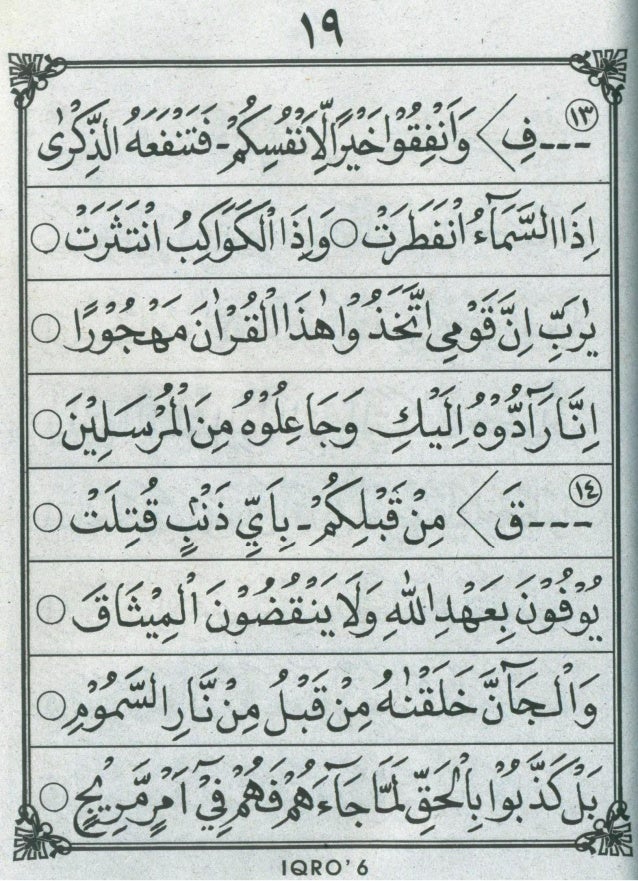 ١٩
١٣ ـ ـ ـ فِ〉 وَاَنْفِقُوْا خَيْرًا لِّاَنْفُسِكُمْ ـ فَتَنْفَعَهُ الذِّكْرٰى
اِذَا السَّمَآءُ انْفَطَرَتْ ○ وَاِذَا الْكَوَاكِبُ انْتَثَرَتْ ○
يٰرَبِّ اِنَّ قَوْمِى اتَّخَذُوْا هٰذَا الْقُرْاٰنَ مَهْجُوْرًا ○
اِنَّا رَآدُّوْهُ اِلَيْكِ وَجَاعِلُوْهُ مِنَ الْمُرْسَلِيْنَ ○
١٤ ـ ـ ـ قَ〉 مِنْ قَبْلِكُمْ ـ بِاَيِّ ذَنْبٍ قُتِلَتْ ○
يُوْفُوْنَ بِعَهْدِ اللّٰهِ وَلَا يَنْقُضُوْنَ الْمِيْثَاقَ ○
وَالْجَآنَّ خَلَقْنٰهُ مِنْ قَبْلُ مِنْ نَّارِ السَّمُوْمِ ○
بَلْ كَذَّبُوْا بِالْحَقِّ لَمَّا جَآءَهُمْ فَهُمْ فِيْٓ اَمْرٍ مَّرِيْجٍ ○
IQRO' 6